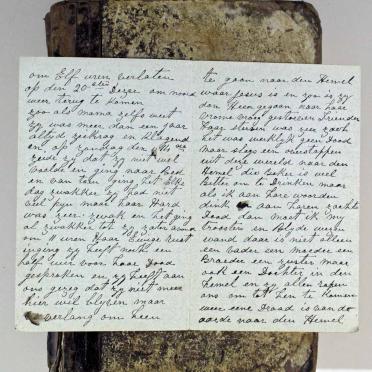 om Elf uren verlaten
op den 20sten Dezer om nooit
weer terug te komen
zoo als mama zelfs weet
zy was meer dan een jaar
altyd ziek en klagend
en op zondag den
zeide zy dat zy niet wel
voelde en ging naar Bed
en van toen ging het Elke
dag zwakker zy had niet
veel pyn maar haar Hard
was zeer zwak en het ging
al zwakker tot zy zaterdag
om 11 uren haar Eeuwige rust
inging zy heeft nog een
half uur voor haar Dood
gesproken en zy heeft aan
ons gezeg dat zy niet meer
hier wil blyven maar
verlang om heen
te gaan naar den Hemel
waar Jesus is en zoo is zy
dan Heen gegaan naar haar
vrome vroeg gestorven
haar sterven was zeer zacht
het was werklyk geen Dood
maar slegs een
uit deze wereld naar den
Hemel die beker is wel
Bitter om te Drinken maar
als ik aan hare woorden
dink en aan haren zachte
Dood dan moet ik my
troosten en Blyde werden
want daar is niet alleen
een vader een moeder een
Braeder een zuster maar
ook een Dochter in den
Hemel en zy allen roepen
ons om tot hen te komen
weer eene Draad is van de
aarde naar den Hemel